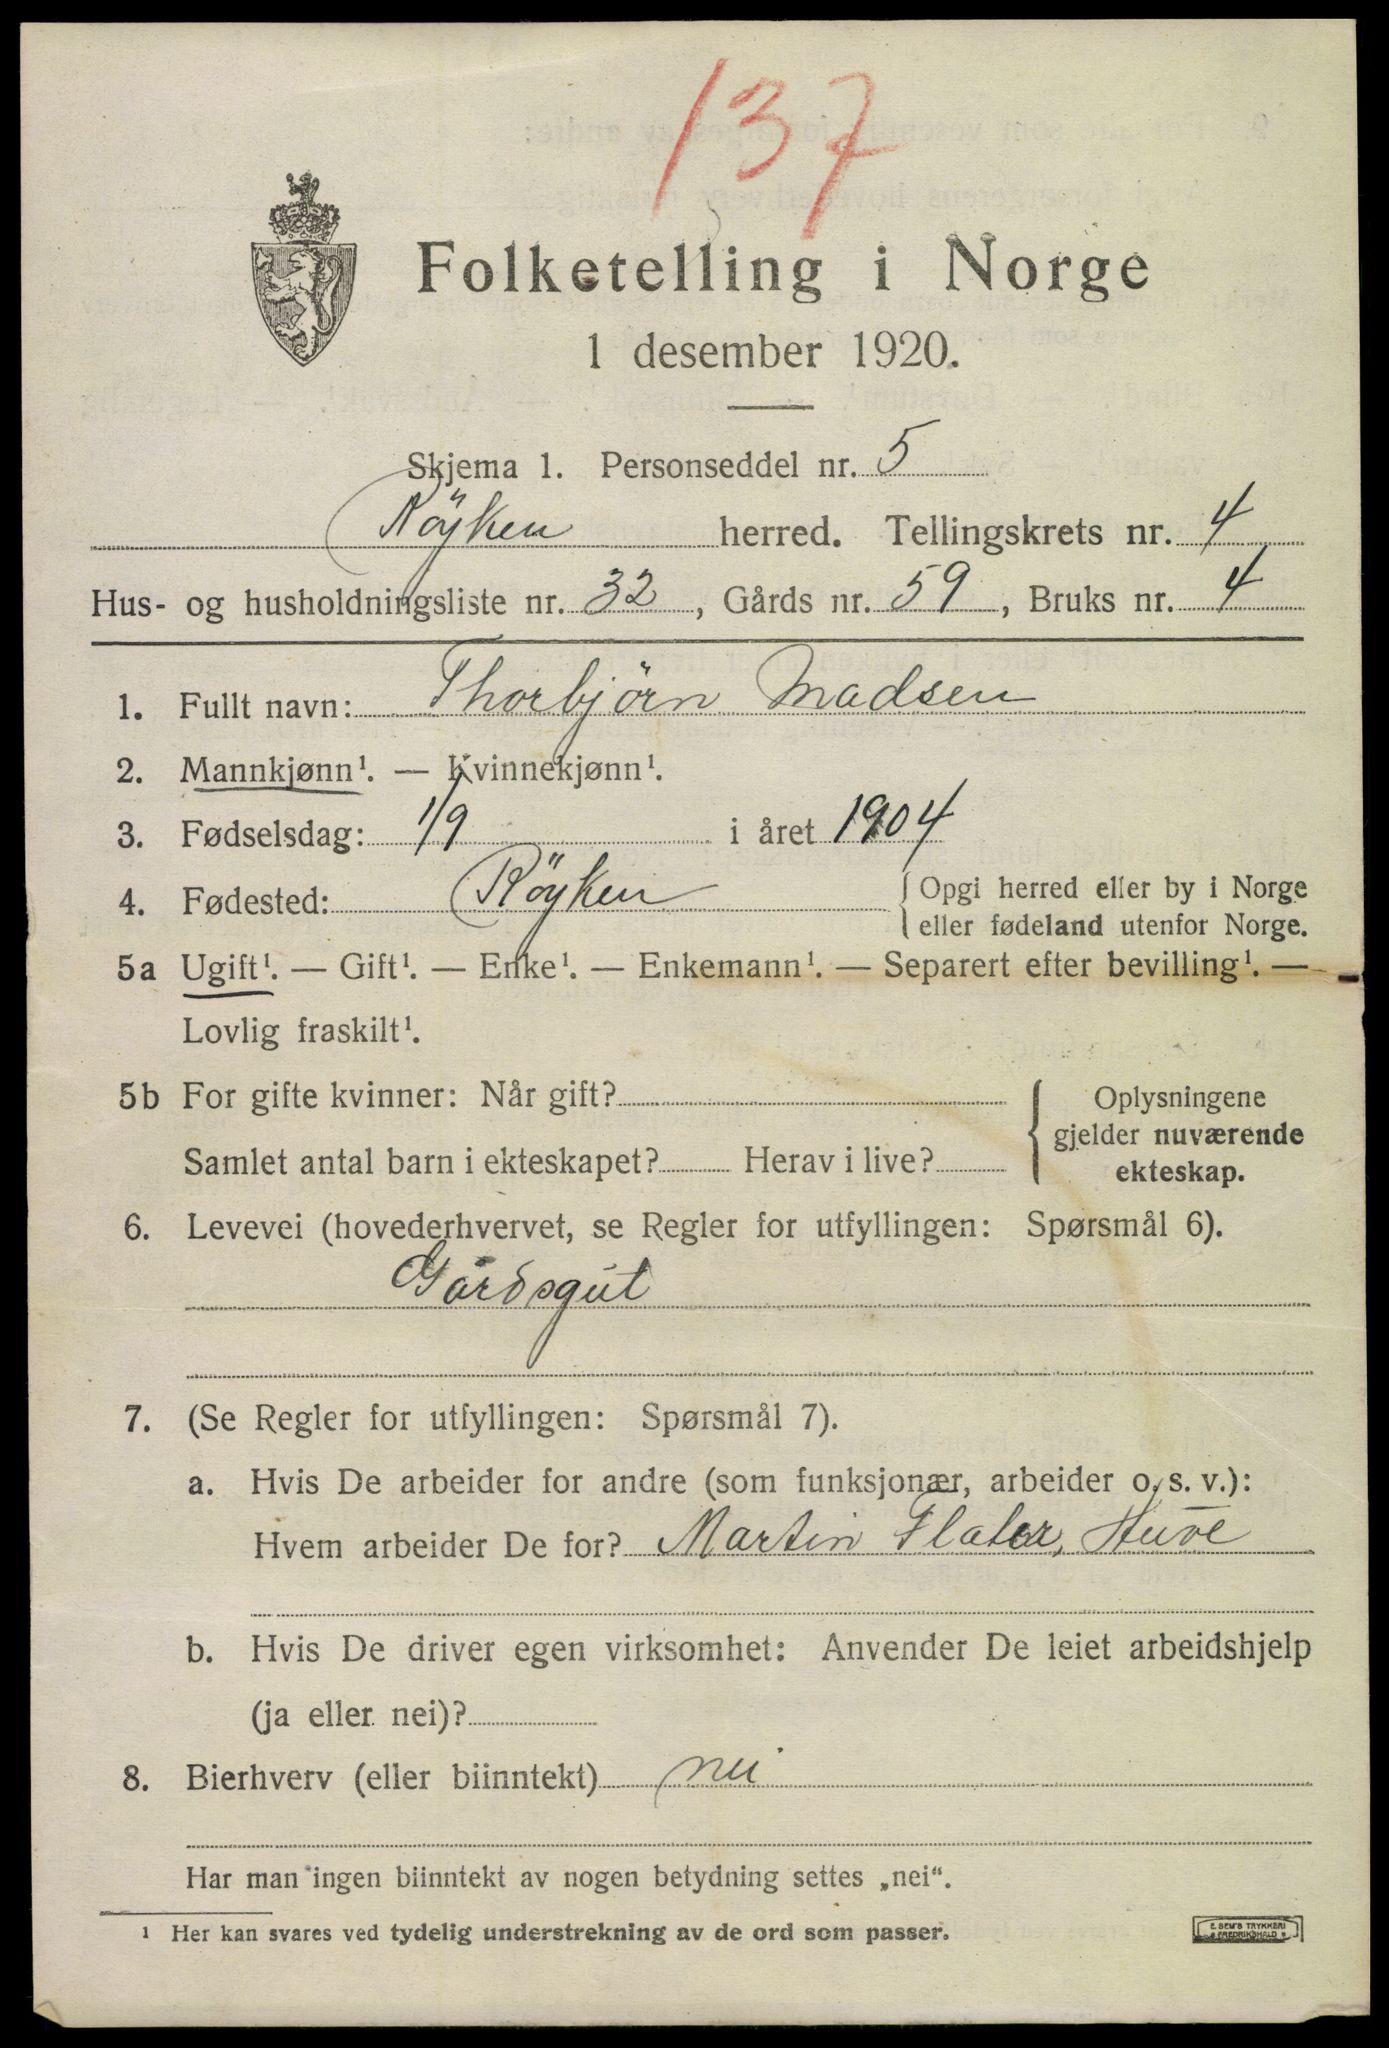 137
Folketelling i Norge
1 desember 1920.
Skjema 1. Personseddel nr. 5
Röyken herred. Tellingskrets nr. 4
Hus- og husholdningsliste nr. 32, Gårds nr. 59, Bruks nr. 4
1. Fullt navn: Thorbjörn Madsen
2. Mannkjønn¹. — Kvinnekjønn¹.
3. Fødselsdag: 1/9 i året 1904
4. Fødested: Röyken { Opgi herred eller by i Norge
eller fødeland utenfor Norge.
5a Ugift¹. — Gift¹. — Enke¹. — Enkemann¹. — Separert efter bevilling¹. —
Lovlig fraskilt¹.
5b For gifte kvinner: Når gift?
Samlet antal barn i ekteskapet? Herav i live?
Oplysningene
gjelder nuværende
ekteskap.
6. Levevei (hovederhvervet, se Regler for utfyllingen: Spørsmål 6).
Gårdsgut
7. (Se Regler for utfyllingen: Spørsmål 7).
a. Hvis De arbeider for andre (som funksjonær, arbeider o. s. v.):
Hvem arbeider De for? Martin
b. Hvis De driver egen virksomhet: Anvender De leiet arbeidshjelp
(ja eller nei)?
8. Bierhverv (eller biinntekt) nei
Har man ingen biinntekt av nogen betydning settes „nei“.
¹ Her kan svares ved tydelig understrekning av de ord som passer.
E. SEM'S TRYKKERI
FREDRIKSHALD